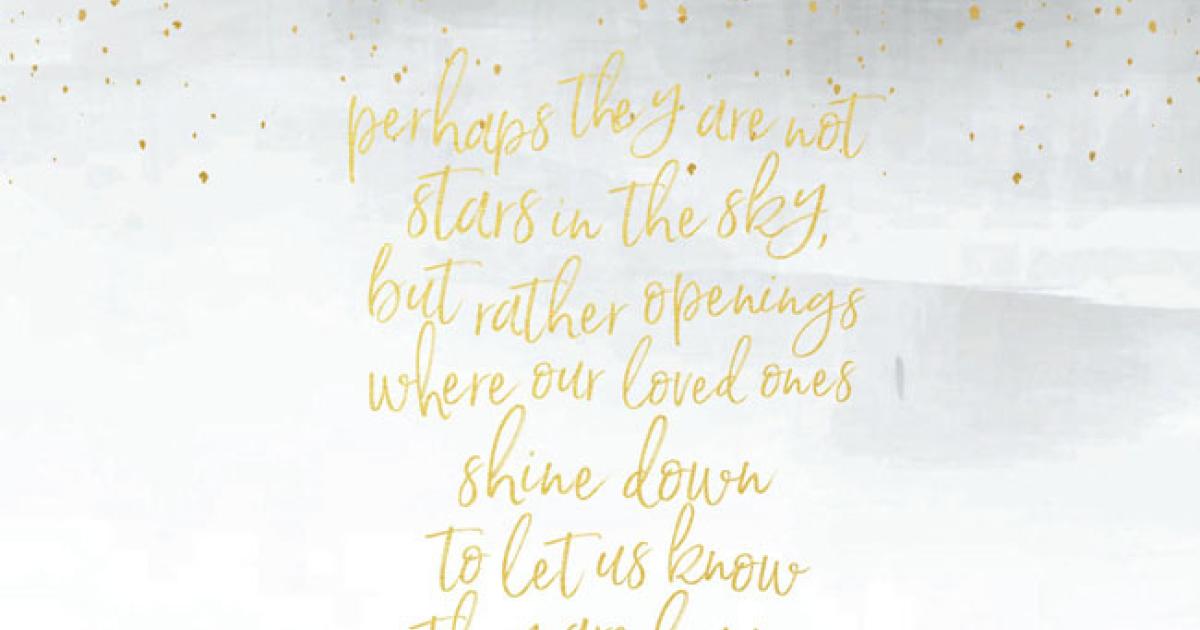 perhaps they are not
stars in the sky,
but rather openings
where our loved ones
shine down
to let us know